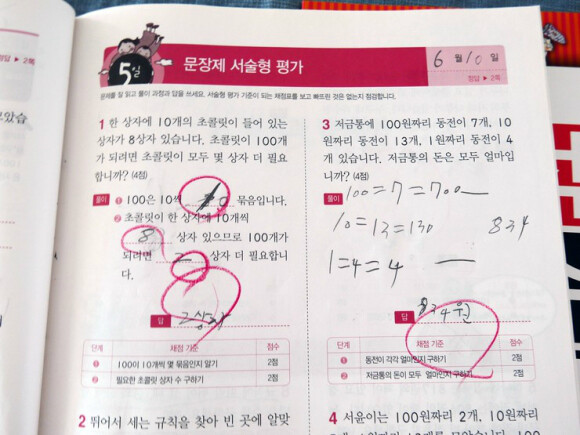 5일
문장제 서술형 평가
6월 10일
정답 ▶ 2쪽
문제를 잘 읽고 풀이 과정과 답을 쓰세요. 서술형 평가 기준이 되는 채점표를 보고 빠뜨린 것은 없는지 점검합니다.
1 한 상자에 10개의 초콜릿이 들어 있는
상자가 8상자 있습니다. 초콜릿이 100개
가 되려면 초콜릿이 모두 몇 상자 더 필요
합니까? (4점)
풀이 ❶ 100은 10씩 10 묶음입니다.
❷ 초콜릿이 한 상자에 10개씩
8 상자 있으므로 100개가
되려면 2 상자 더 필요합니
다.
답 2상자
단계 채점 기준 점수
❶ 100이 10개씩 몇 묶음인지 알기 2점
❷ 필요한 초콜릿 상자 수 구하기 2점
2 뛰어서 세는 규칙을 찾아 빈 곳에 알맞
3 저금통에 100원짜리 동전이 7개, 10
원짜리 동전이 13개, 1원짜리 동전이 4
개 있습니다. 저금통의 돈은 모두 얼마입
니까? (4점)
풀이 100=7=700
10=13=130 834
1=4=4
답 834원
단계 채점 기준 점수
❶ 동전이 각각 얼마인지 구하기 2점
❷ 저금통의 돈이 모두 얼마인지 구하기 2점
4 서윤이는 100원짜리 2개, 10원짜